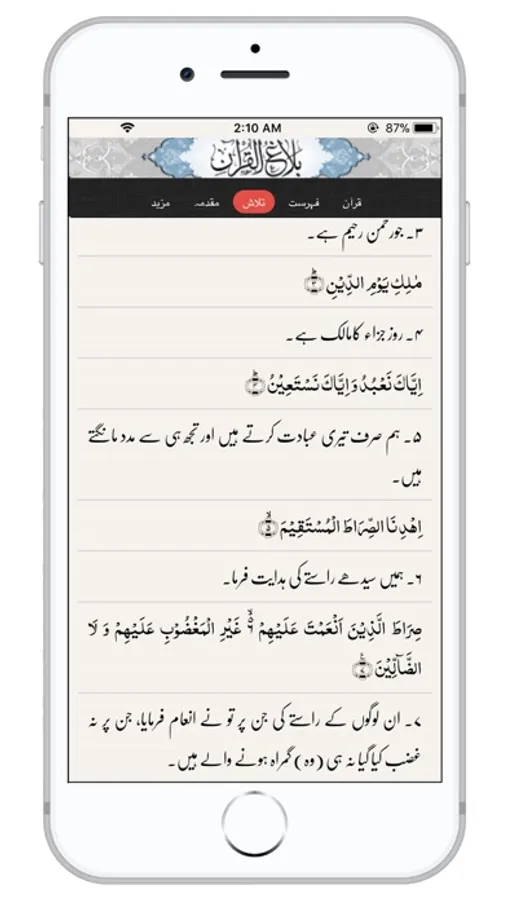 2:10 AM 87%
بلاغ القرآن
قرآن فہرست تلاش مقدمہ مزید
۳۔ جو رحمن رحیم ہے۔
مٰلِكِ يَوْمِ الدِّيْنِ
۴۔ روز جزاء کا مالک ہے۔
اِيَّاكَ نَعْبُدُ وَ اِيَّاكَ نَسْتَعِيْنُ
۵۔ ہم صرف تیری عبادت کرتے ہیں اور تجھ ہی سے مدد مانگتے
ہیں۔
اِهْدِنَا الصِّرَاطَ الْمُسْتَقِيْمَ
۶۔ ہمیں سیدھے راستے کی ہدایت فرما۔
صِرَاطَ الَّذِيْنَ اَنْعَمْتَ عَلَيْهِمْ غَيْرِ الْمَغْضُوْبِ عَلَيْهِمْ وَ لَا
الضَّآلِّيْنَ
۷۔ ان لوگوں کے راستے کی جن پر تو نے انعام فرمایا، جن پر نہ
غضب کیا گیا نہ ہی (وہ) گمراہ ہونے والے ہیں۔